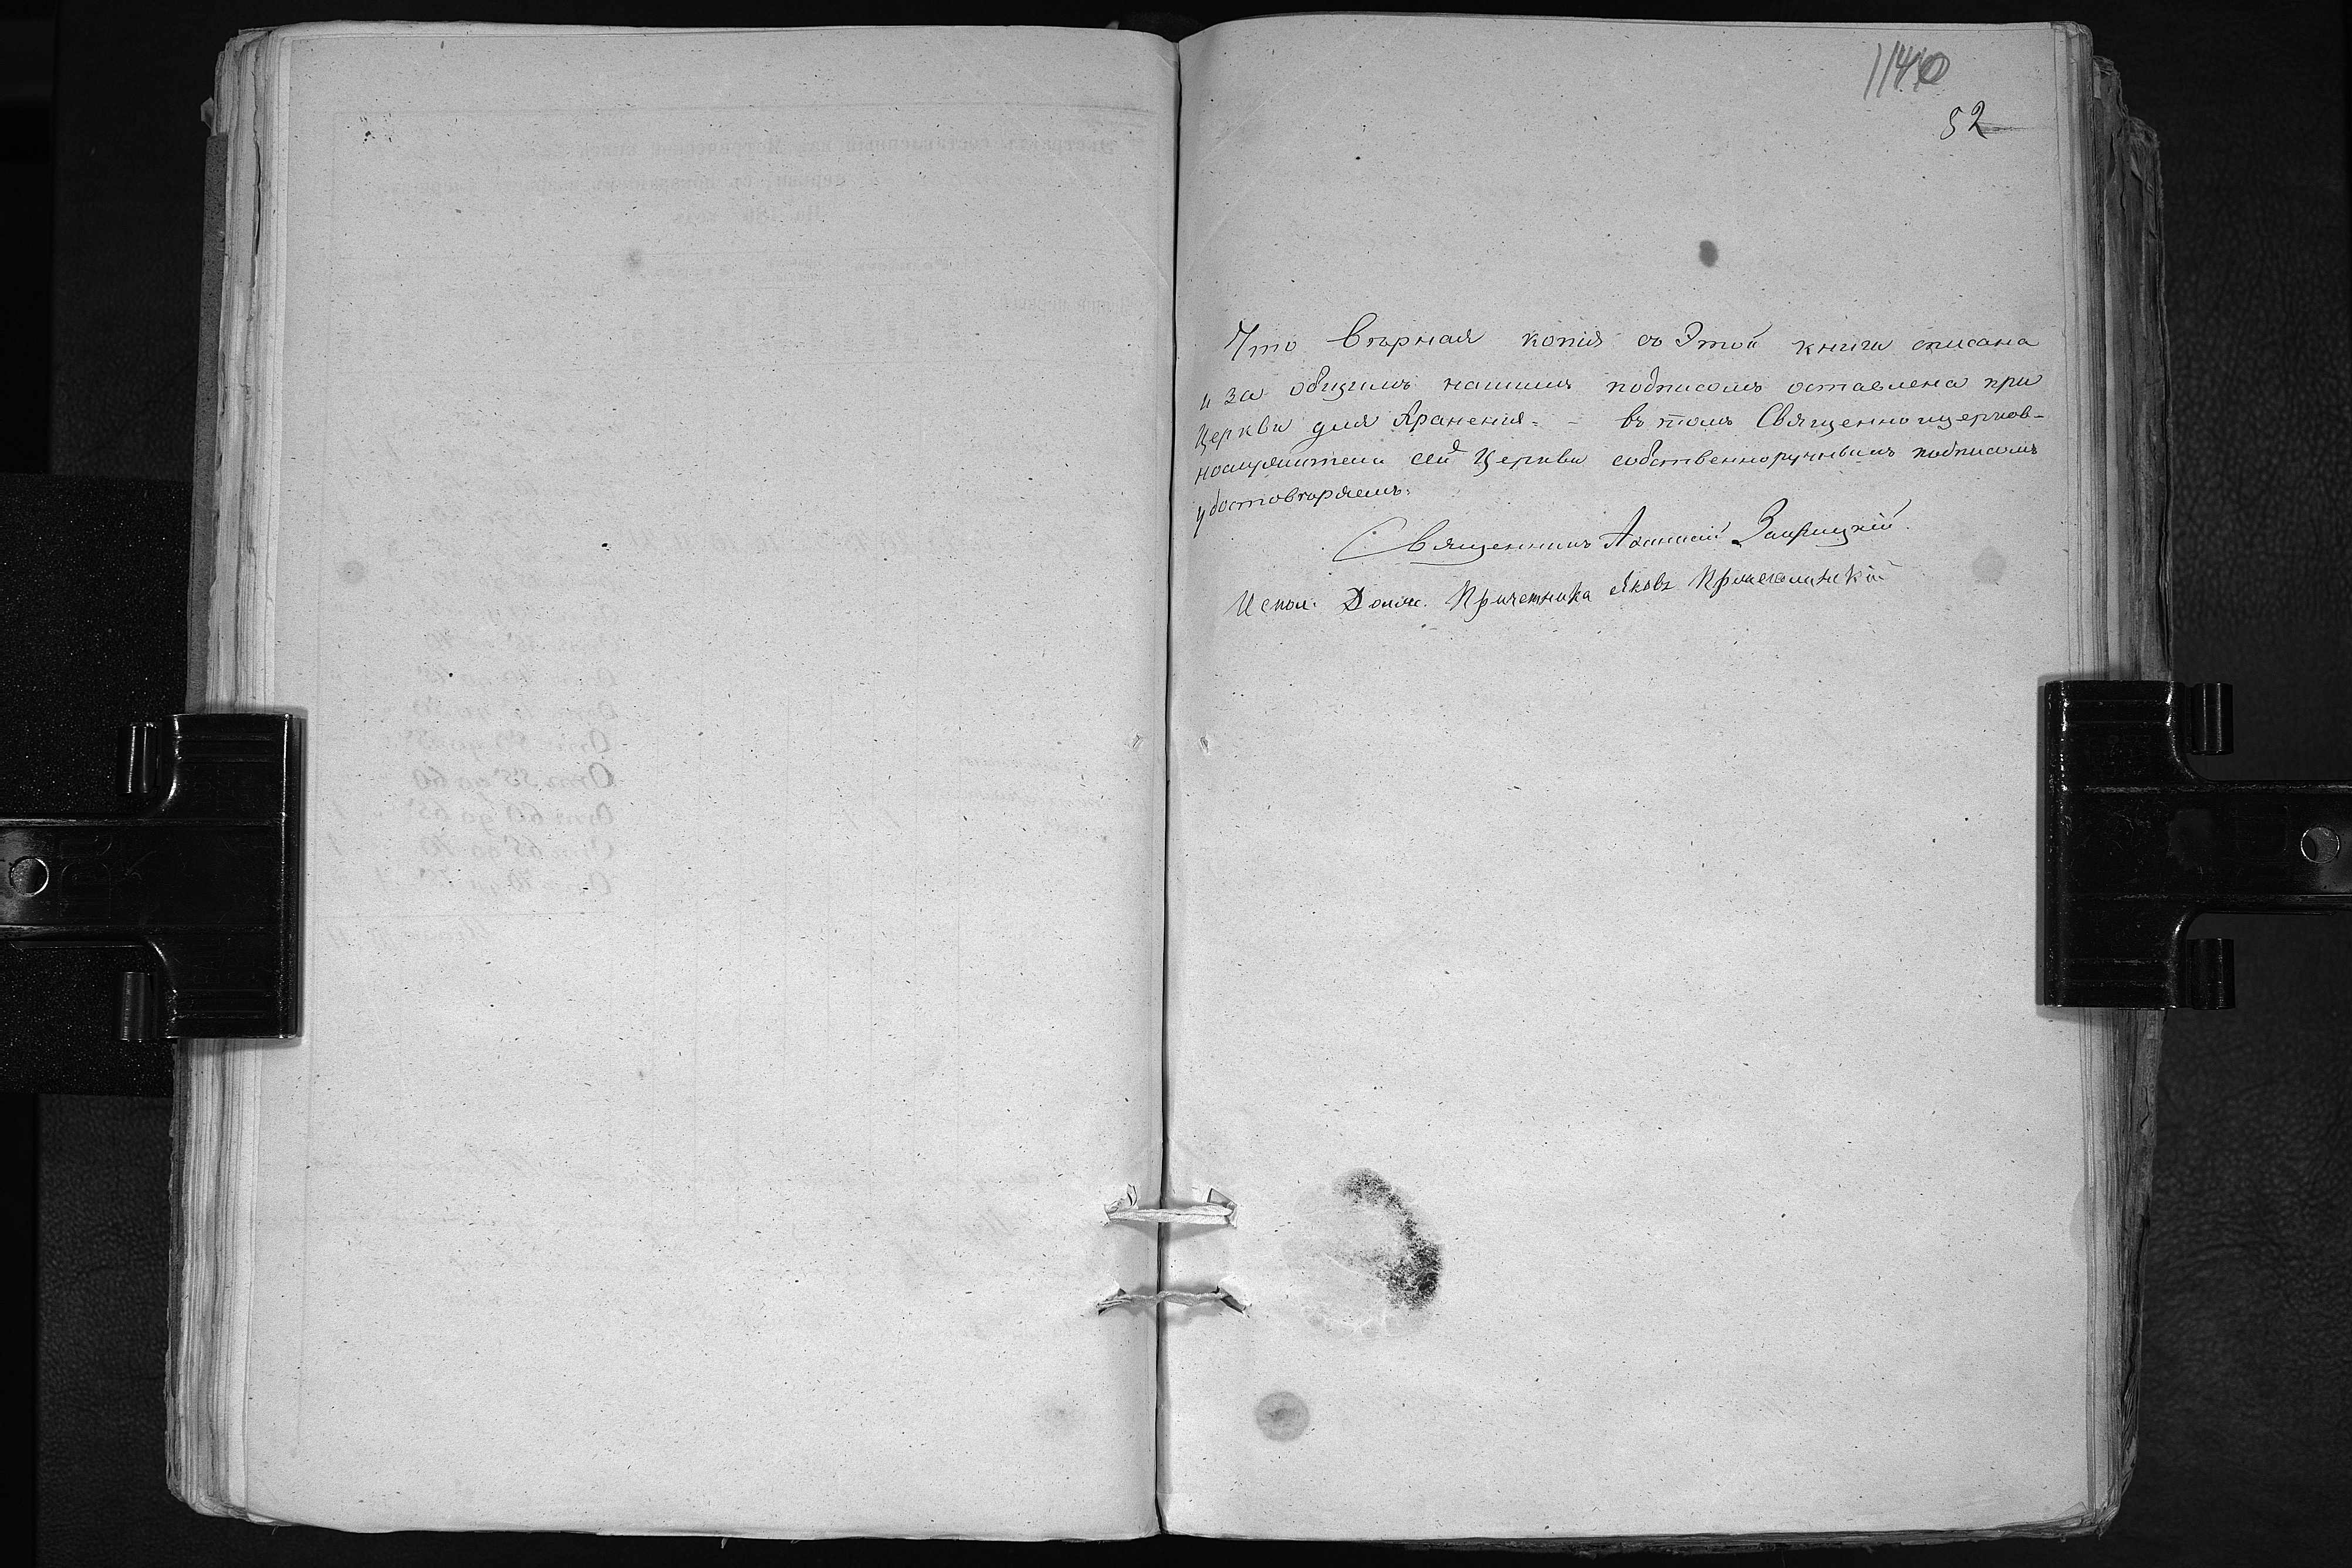 1140
52
Что вѣрная копія съ Этой книги списана
и за общимъ нашимъ подписомъ оставлена при
Церкви для Хранения. - въ томъ Священноицерков-
нослужители сей Церкви собственноручнымъ подписомъ
удостовѣряемъ.
Священникъ Афанасій
Испол. Должн. Причетника Яковъ